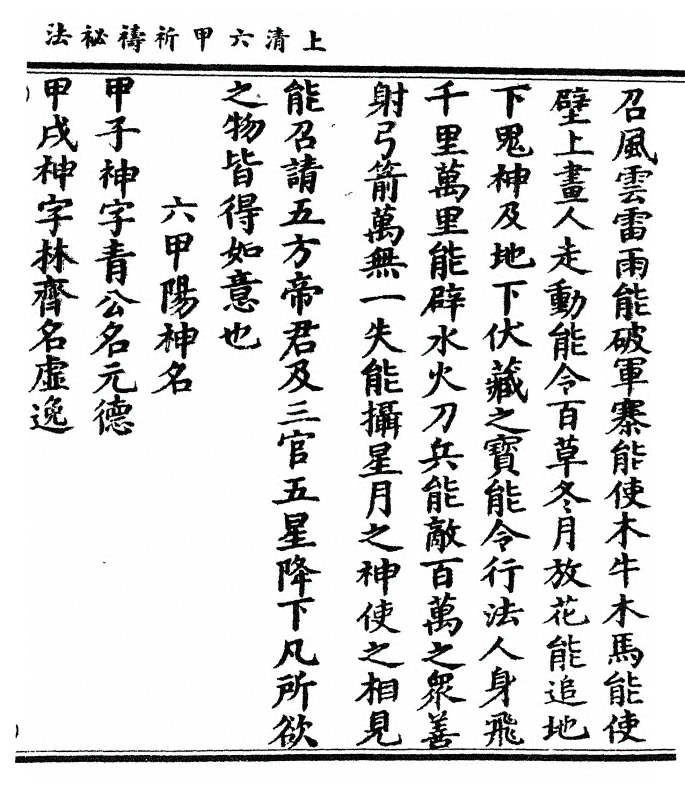 上清六甲祈禱祕法
召風雲雷雨能破軍寨能使木牛木馬能使
壁上畫人走動能令百草冬月放花能追地
下鬼神及地下伏藏之寶能令行法人身飛
千里萬里能辟水火刀兵能敵百萬之眾善
射弓箭萬無一失能攝星月之神使之相見
能召請五方帝君及三官五星降下凡所欲
之物皆得如意也
六甲陽神名
甲子神字青公名元德
甲戌神字林齊名虛逸